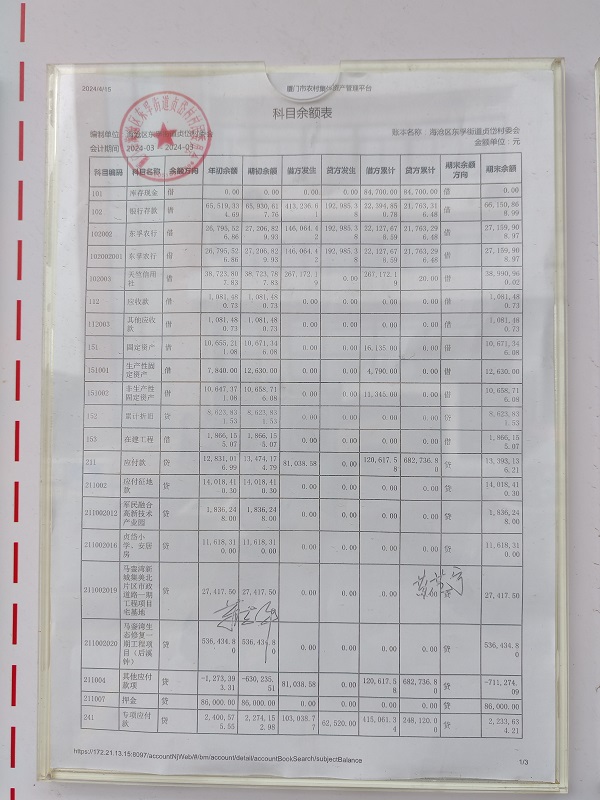 2024/4/15 厦门市农村集体资产管理平台
科目余额表
编制单位：海沧区东孚街道贞岱村村委会 账本名称：海沧区东孚街道贞岱村委会
会计期间：2024-03 — 2024-03 金额单位：元
科目编码 科目名称 余额方向 年初余额 期初余额 借方发生 贷方发生 借方累计 贷方累计 期末余额方向 期末余额
101 库存现金 借 0.00 0.00 0.00 0.00 84,700.00 84,700.00 借 0.00
102 银行存款 借 65,519,334.69 65,930,617.76 413,236.61 192,985.38 22,394,850.78 21,763,316.48 借 66,150,868.99
102002 东孚农行 借 26,795,526.86 27,206,829.93 146,064.42 192,985.38 22,127,678.59 21,763,296.48 借 27,159,908.97
102002001 东孚农行 借 26,795,526.86 27,206,829.93 146,064.42 192,985.38 22,127,678.59 21,763,296.48 借 27,159,908.97
102003 天竺信用社 借 38,723,807.83 38,723,787.83 267,172.19 0.00 267,172.19 20.00 借 38,990,960.02
112 应收款 借 1,081,480.73 1,081,480.73 0.00 0.00 0.00 0.00 借 1,081,480.73
112003 其他应收款 借 1,081,480.73 1,081,480.73 0.00 0.00 0.00 0.00 借 1,081,480.73
151 固定资产 借 10,655,211.08 10,671,346.08 0.00 0.00 16,135.00 0.00 借 10,671,346.08
151001 生产性固定资产 借 7,840.00 12,630.00 0.00 0.00 4,790.00 0.00 借 12,630.00
151002 非生产性固定资产 借 10,647,371.08 10,658,716.08 0.00 0.00 11,345.00 0.00 借 10,658,716.08
152 累计折旧 贷 8,623,831.53 8,623,831.53 0.00 0.00 0.00 0.00 贷 8,623,831.53
153 在建工程 借 1,866,155.07 1,866,155.07 0.00 0.00 0.00 0.00 借 1,866,155.07
211 应付款 贷 12,831,016.99 13,474,174.79 81,038.58 0.00 120,617.58 682,736.80 贷 13,393,136.21
211002 应付征地款 贷 14,018,410.30 14,018,410.30 0.00 0.00 0.00 0.00 贷 14,018,410.30
211002012 军民融合高新技术产业园 贷 1,836,248.00 1,836,248.00 0.00 0.00 0.00 0.00 贷 1,836,248.00
211002016 贞岱小学、安居房 贷 11,618,310.00 11,618,310.00 0.00 0.00 0.00 0.00 贷 11,618,310.00
211002019 马銮湾新城集美北片区市政道路一期工程项目宅基地 贷 27,417.50 27,417.50 0.00 0.00 0.00 贷 27,417.50
211002020 马銮湾生态修复一期工程项目（后溪钟） 贷 536,434.80 536,434.80 0.00 0.00 0.00 0.00 贷 536,434.80
211004 其他应付款项 贷 -1,273,393.31 -630,235.51 81,038.58 0.00 120,617.58 682,736.80 贷 -711,274.09
211007 押金 贷 86,000.00 86,000.00 0.00 0.00 0.00 0.00 贷 86,000.00
241 专项应付款 贷 2,400,575.55 2,274,152.98 103,038.77 62,520.00 415,061.34 248,120.00 贷 2,233,634.21
https://172.21.13.15:8097/accountNjWeb/#/bm/account/detail/accountBookSearch/subjectBalance 1/3